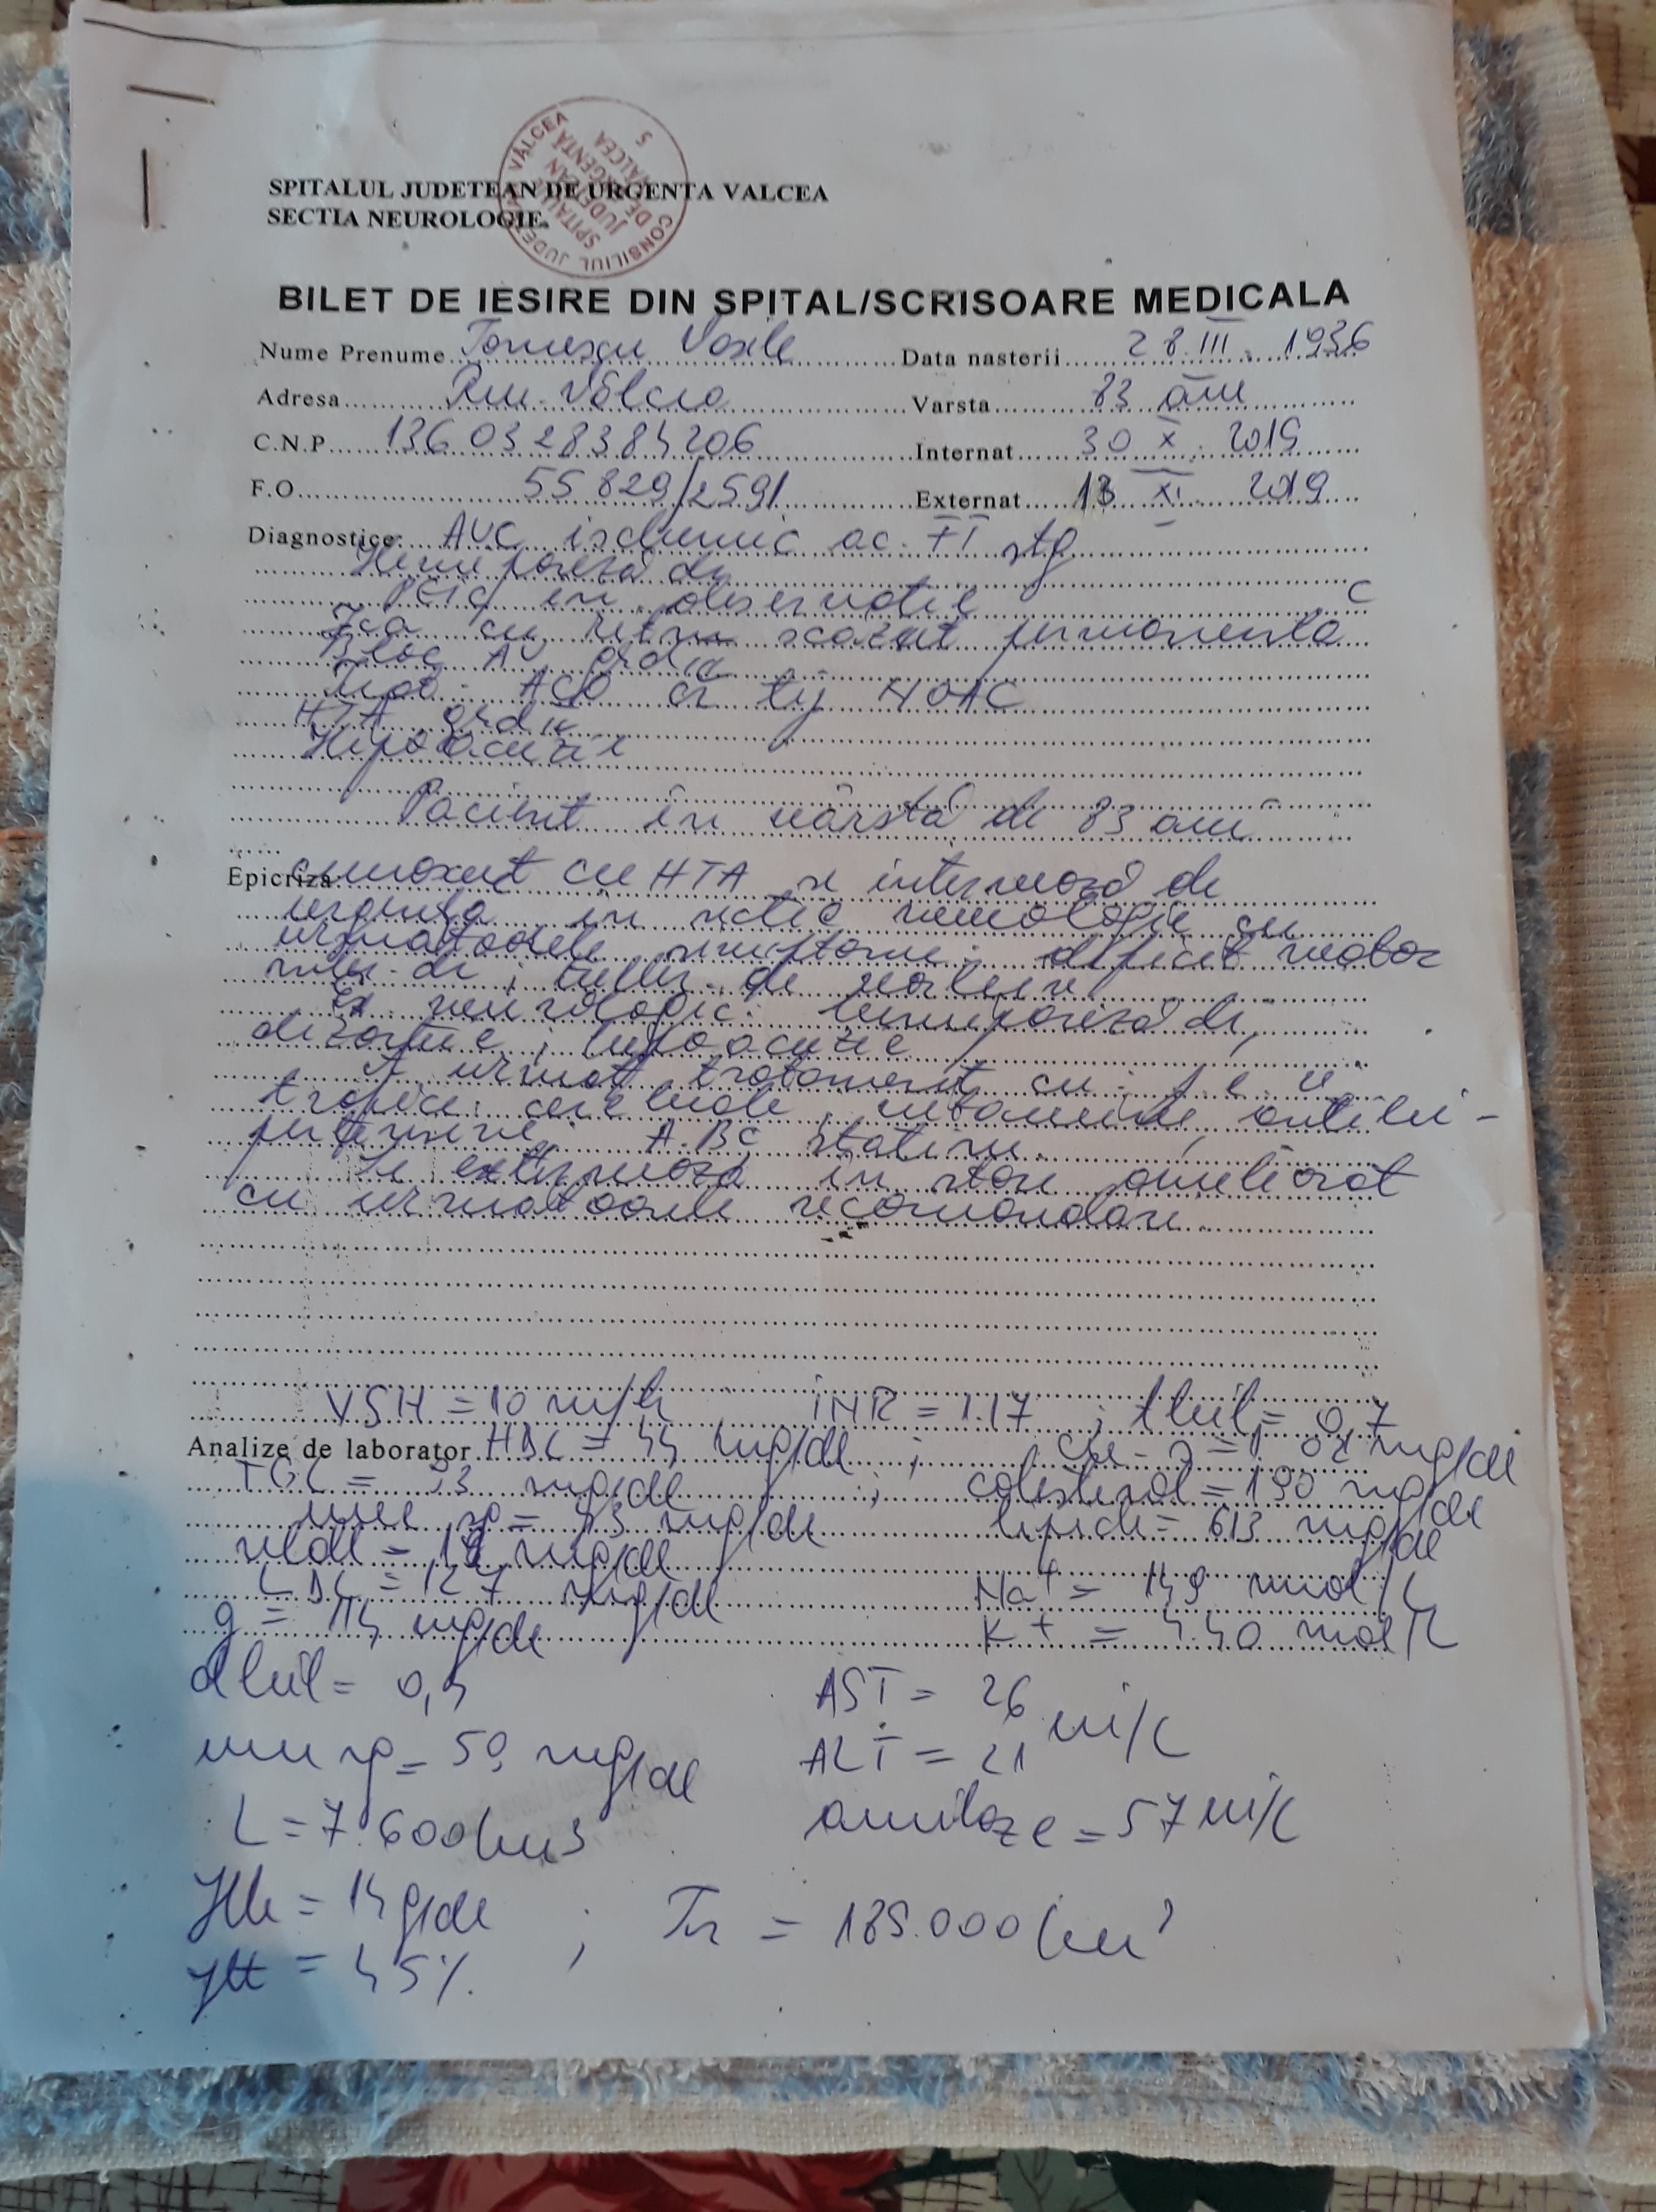 CONSILIUL JUDEȚEAN VÂLCEA
SPITALUL JUDEȚEAN DE URGENȚĂ VALCEA
5
SPITALUL JUDETEAN DE URGENTA VALCEA
SECTIA NEUROLOGIE
BILET DE IESIRE DIN SPITAL/SCRISOARE MEDICALA
Nume Prenume Vasile Data nasterii 28.III.1936
Adresa Rm. Vâlcea Varsta 83 ani
C.N.P. Internat 30 X. 2019
F.O. 55829/2591 Externat 13 XI. 2019
Diagnostice: AVC ischemic ac. stg
Hemipareză dr
în observatie
cu ritm scăzut permanentă
Bloc AV grd
ACO cr tip NOAC
HTA grd
Hipoacuzie
Pacient în vârstă de 83 ani
Epicriza: cunoscut cu HTA se internează de
urgenta in sectia neurologie cu
urmatoarele simptome: deficit motor
dr; tulb. de vorbire.
Ex. neurologic: hemipareză dr,
dizartrie, hipoacuzie
A urmat tratament cu:
trofice cerebrale, vitamine, antihi-
pertensive, statine.
Se externează in stare ameliorat
cu urmatoarele recomandari.
VSH = 10 m/h INR = 1.17 ; tbil = 0,7
Analize de laborator HDL = 44 mg/dl ; mg/dl
TGL = 93 mg/dl ; colesterol = 190 mg/dl
mg/dl lipide = 613 mg/dl
vldl = mg/dl
LDL = 127 mg/dl Na+ = 149 mmol/L
g = 114 mg/dl K+ = 4.40 mmol/L
dbil = 0,4 AST = 26
mg/dl ALT = 21 ui/L
L = 7.600/mm3 amilaze = 57 ui/L
Hb = 14 g/dl ; Tr = 189.000/mm3
Ht = 45%